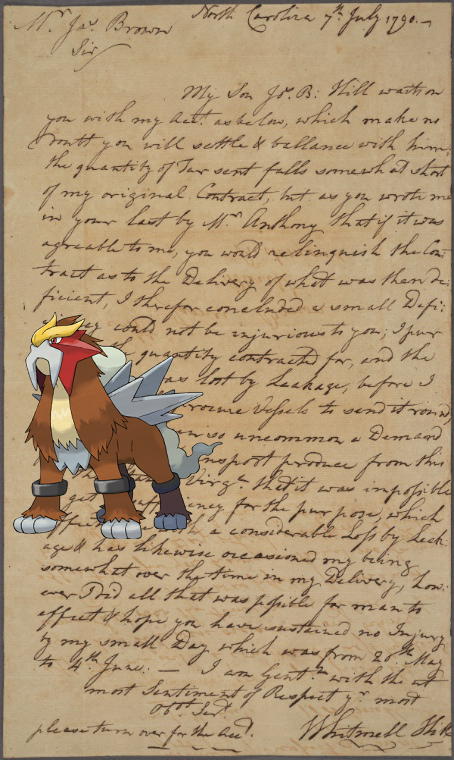 North Carolina 7th July 1790.—
Mr. Jas. Brown
Sir
My Son Jos. B: Hill waits on
you with my Acct. as below, which make no
doubt you will settle & ballance with him,
the quantity of Tar sent falls somewhat short
of my original Contract, but as you wrote me
in your last by Mr. Anthony that if it was
agreable to me, you would relinquish the Con-
tract as to the Delivery of what was then de-
ficient, I therefor concluded a small Defi-
could not be injurious to you; I pur
quantity contracted for, and the
was lost by Leakage, before I
procure Vessels to send it round,
uncommon a Demand
produce from this
Virga. that it was impossible
get for the purpose, which
a considerable Loss by Leak
age & has likewise occasioned my being
somewhat over the time in my Delivery, how-
ever I did all that was possible for man to
effect & hope you have sustained no Injury
by my small Delay which was from 20th May
to 4th June.— I am Gentn. with the
most Sentiment of Respect yr. most
Obt. Servt.
Whitmell Hill
please turn over for the Acct.